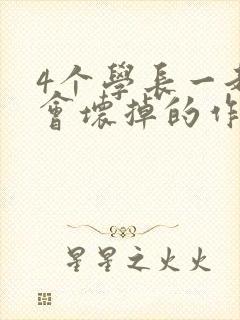 4个學長一
會壞掉的作
星星之火火